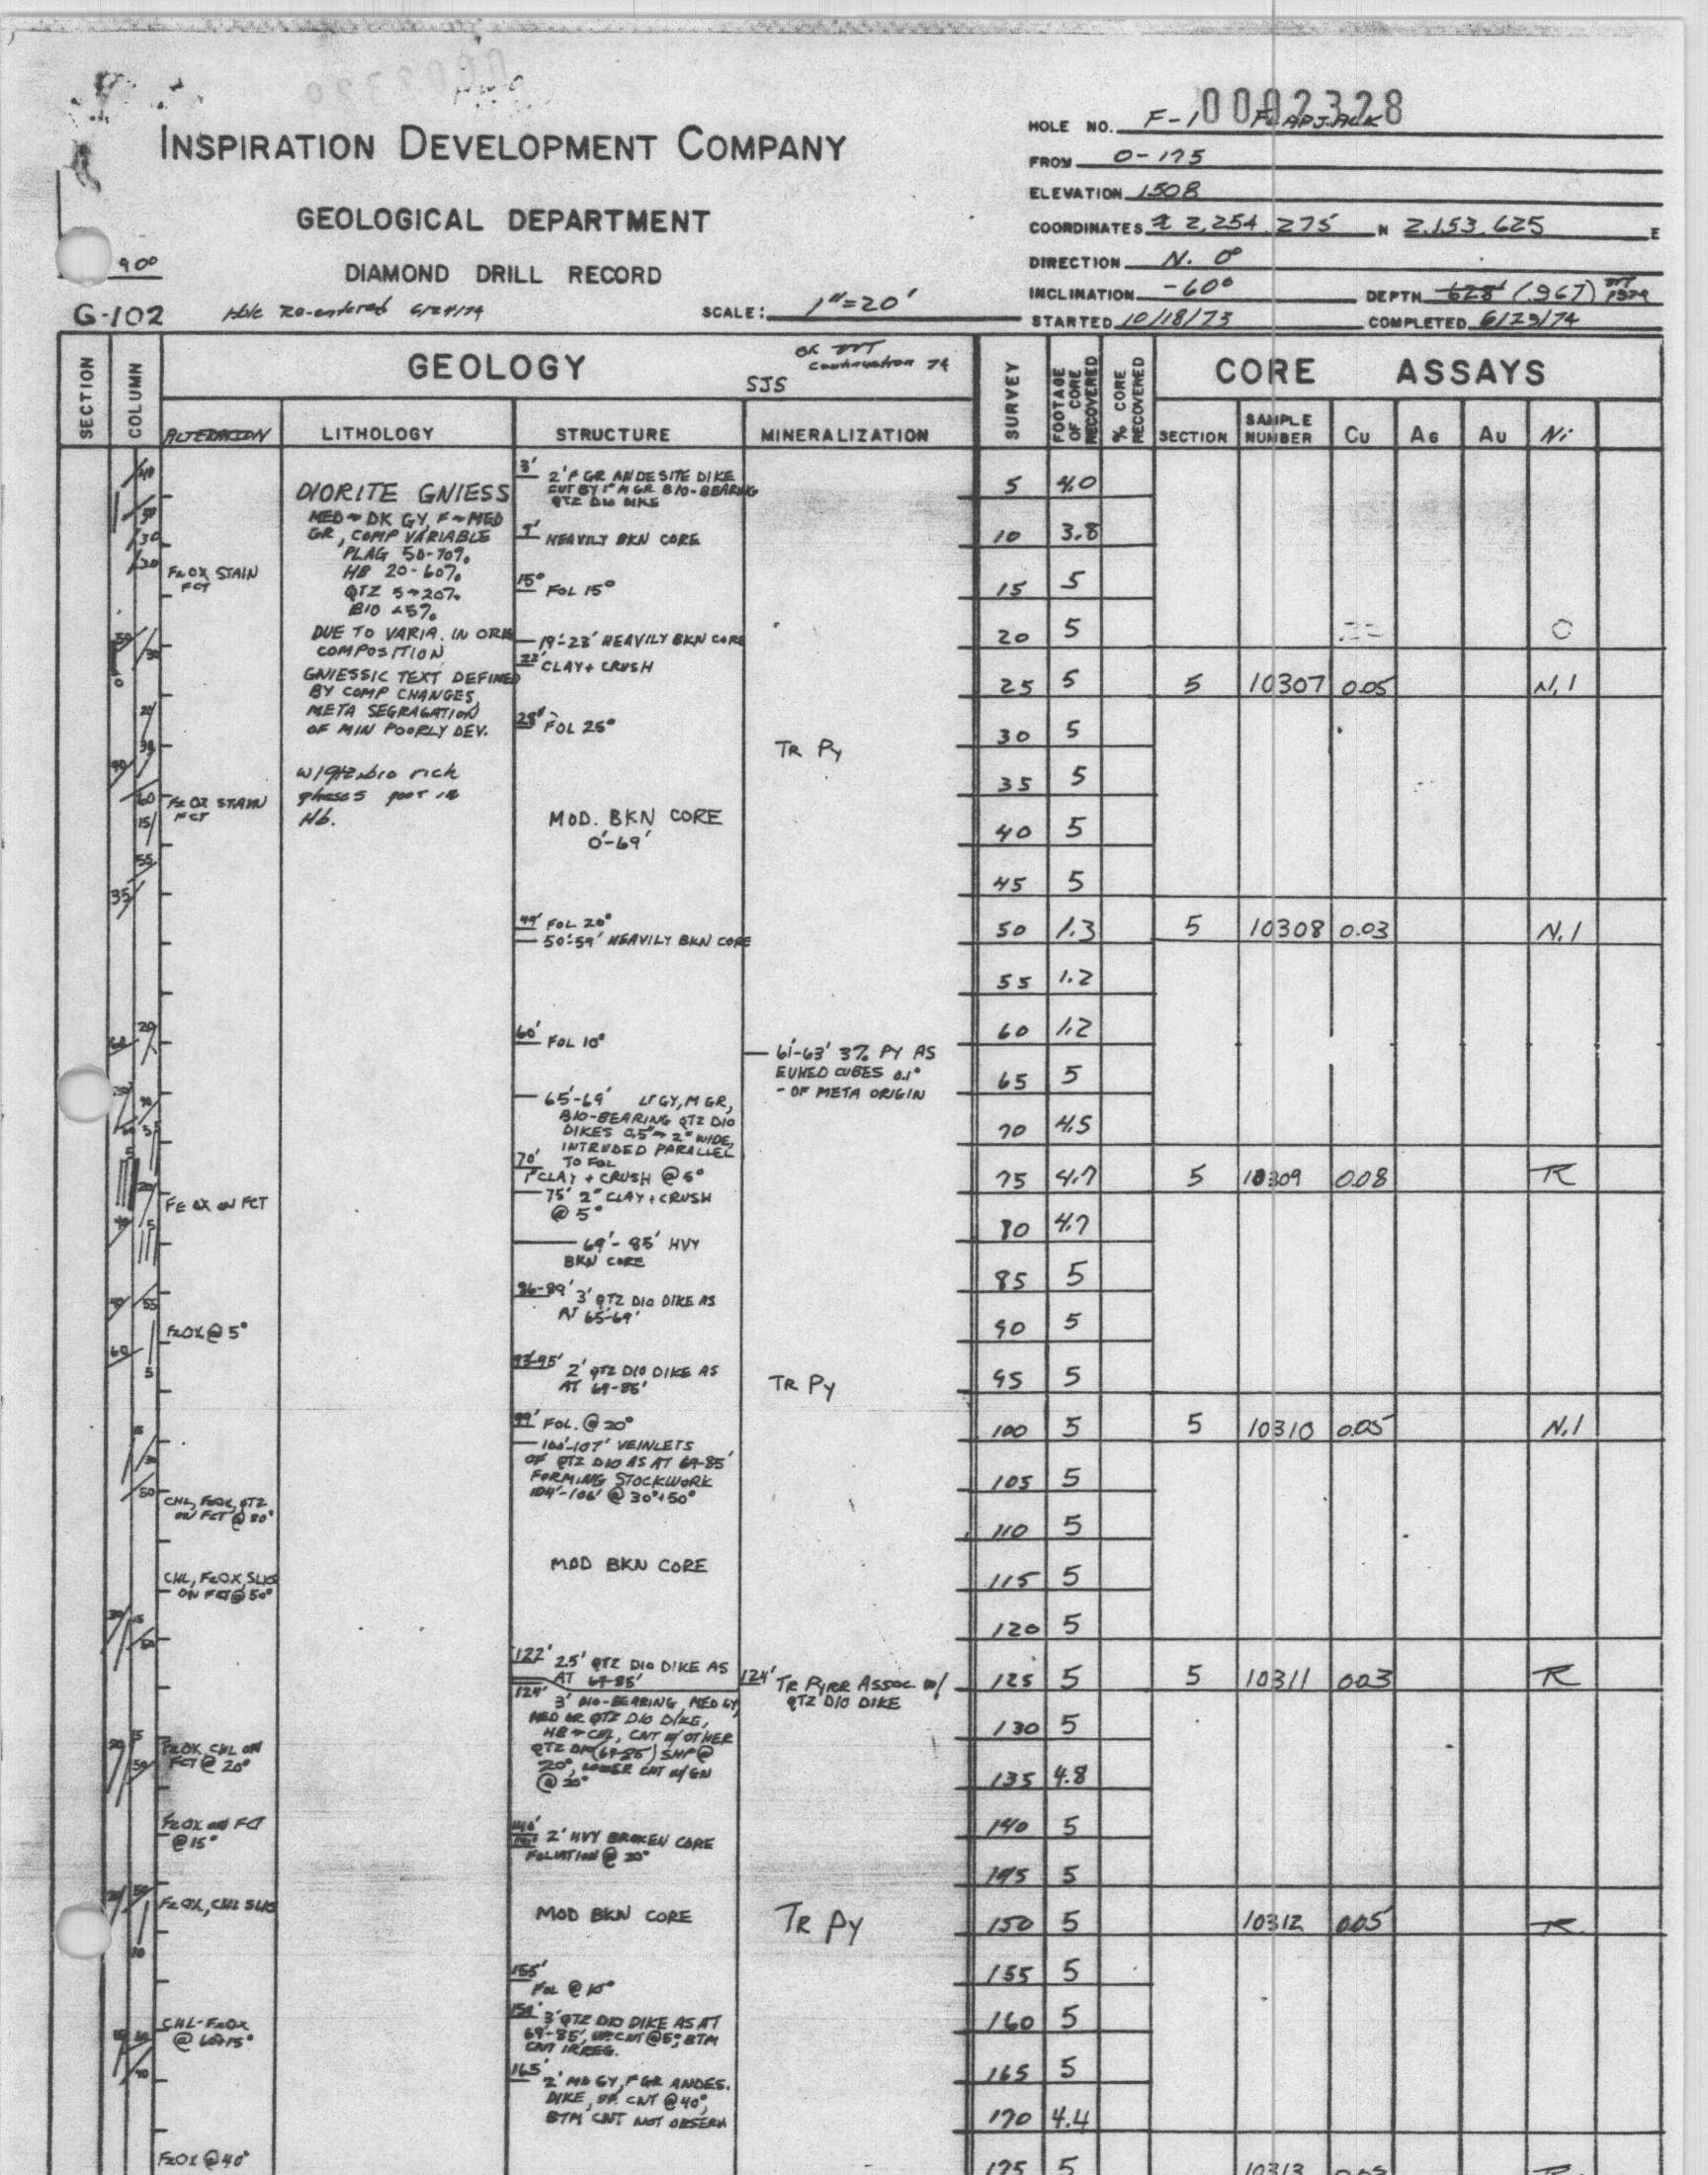 0002328
INSPIRATION DEVELOPMENT COMPANY
GEOLOGICAL DEPARTMENT
DIAMOND DRILL RECORD
90°
G-102
Hole Re-entered 6/24/74
SCALE: 1"=20'
HOLE NO. F-1 FLAPJACK
FROM 0-175
ELEVATION 1508
COORDINATES 2,254,275 N 2,153,625 E
DIRECTION N. 0°
INCLINATION -60° DEPTH 628' (967) 1974
STARTED 10/18/73 COMPLETED 6/29/74
SECTION
COLUMN
GEOLOGY
continuation 74
SJS
ALTERATION
LITHOLOGY
STRUCTURE
MINERALIZATION
SURVEY
FOOTAGE OF CORE RECOVERED
% CORE RECOVERED
CORE ASSAYS
SECTION SAMPLE NUMBER Cu AG AU Ni
FEOX STAIN
FCT
FEOX STAIN
FCT
FE OX ON FCT
FEOX @ 5°
CHL, FEOX, QTZ
ON FCT @ 80°
CHL, FEOX, SLKS
ON FCT @ 50°
FEOX, CHL ON
FCT @ 20°
FEOX ON FCT
@ 15°
FEOX, CHL SLKS
CHL-FEOX
FEOX @ 40°
DIORITE GNIESS
MED~DK GY, F~MED
GR, COMP VARIABLE
PLAG 50-70%
HB 20-60%
QTZ 5-20%
BIO <5%
DUE TO VARIA. IN ORIG
COMPOSITION
GNIESSIC TEXT DEFINED
BY COMP CHANGES,
META SEGRAGATION
OF MIN POORLY DEV.
w/qtz-bio rich
phases poor in
Hb.
3' 2' F GR ANDESITE DIKE
CUT BY 1" M GR BIO-BEARING
QTZ DIO DIKE
9' HEAVILY BKN CORE
15° FOL 15°
19'-23' HEAVILY BKN CORE
22' CLAY + CRUSH
28' FOL 25°
MOD. BKN CORE
0'-69'
49' FOL 20°
50'-59' HEAVILY BKN CORE
60' FOL 10°
65'-69' LT GY, M GR,
BIO-BEARING QTZ DIO
DIKES 0.5"~2" WIDE,
INTRUDED PARALLEL
TO FOL
70' 1" CLAY + CRUSH @ 5°
75' 2" CLAY + CRUSH
@ 5°
69'-85' HVY
BKN CORE
86-89' 3' QTZ DIO DIKE AS
AT 65'-69'
93-95' 2' QTZ DIO DIKE AS
AT 69-85'
99' FOL. @ 20°
100'-107' VEINLETS
OF QTZ DIO AS AT 69-85'
FORMING STOCKWORK
104'-106' @ 30°+50°
MOD BKN CORE
122' 2.5' QTZ DIO DIKE AS
AT 69-85'
124' 3' BIO-BEARING, MED GY,
MED GR QTZ DIO DIKE,
HB~CHL, CNT W/OTHER
QTZ DIO (69-85') SHP @
20°, LOWER CNT W/GN
@ 20°
140'
141' 2' HVY BROKEN CORE
FOLIATION @ 20°
MOD BKN CORE
155'
FOL @ 10°
3' QTZ DIO DIKE AS AT
69'-85', UP CNT @ 5°, BTM
CNT IRREG.
165' 2' MD GY, F GR ANDES.
DIKE, UP. CNT @ 40°,
BTM CNT NOT OBSERV
TR PY
61'-63' 3% PY AS
EUHED CUBES 0.1"
- OF META ORIGIN
TR PY
124' TR PYRR ASSOC W/
QTZ DIO DIKE
TR PY
5 4.0
10 3.8
15 5
20 5
25 5 5 10307 0.05 N.1
30 5
35 5
40 5
45 5
50 1.3 5 10308 0.03 N.1
55 1.2
60 1.2
65 5
70 4.5
75 4.7 5 10309 0.08 TR
80 4.7
85 5
90 5
95 5
100 5 5 10310 0.05 N.1
105 5
110 5
115 5
120 5
125 5 5 10311 0.03 TR
130 5
135 4.8
140 5
145 5
150 5 10312 0.05 TR
155 5
160 5
165 5
170 4.4
175 5 10313